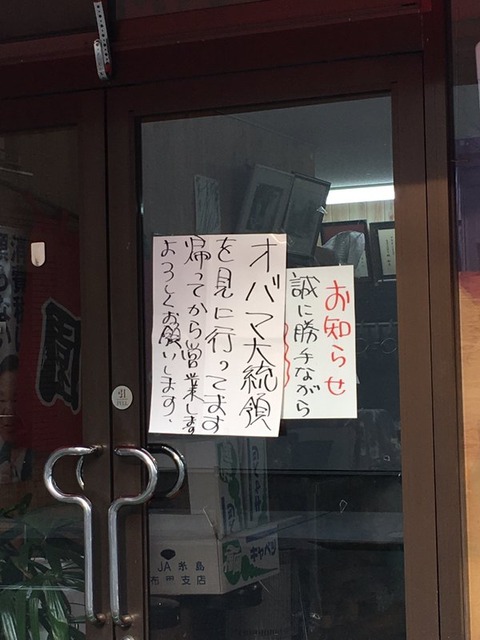 お知らせ
誠に勝手ながら
オバマ大統領
を見に行ってます
帰ってから営業します
よろしくお願いします、
引
キャベツ
JA糸島